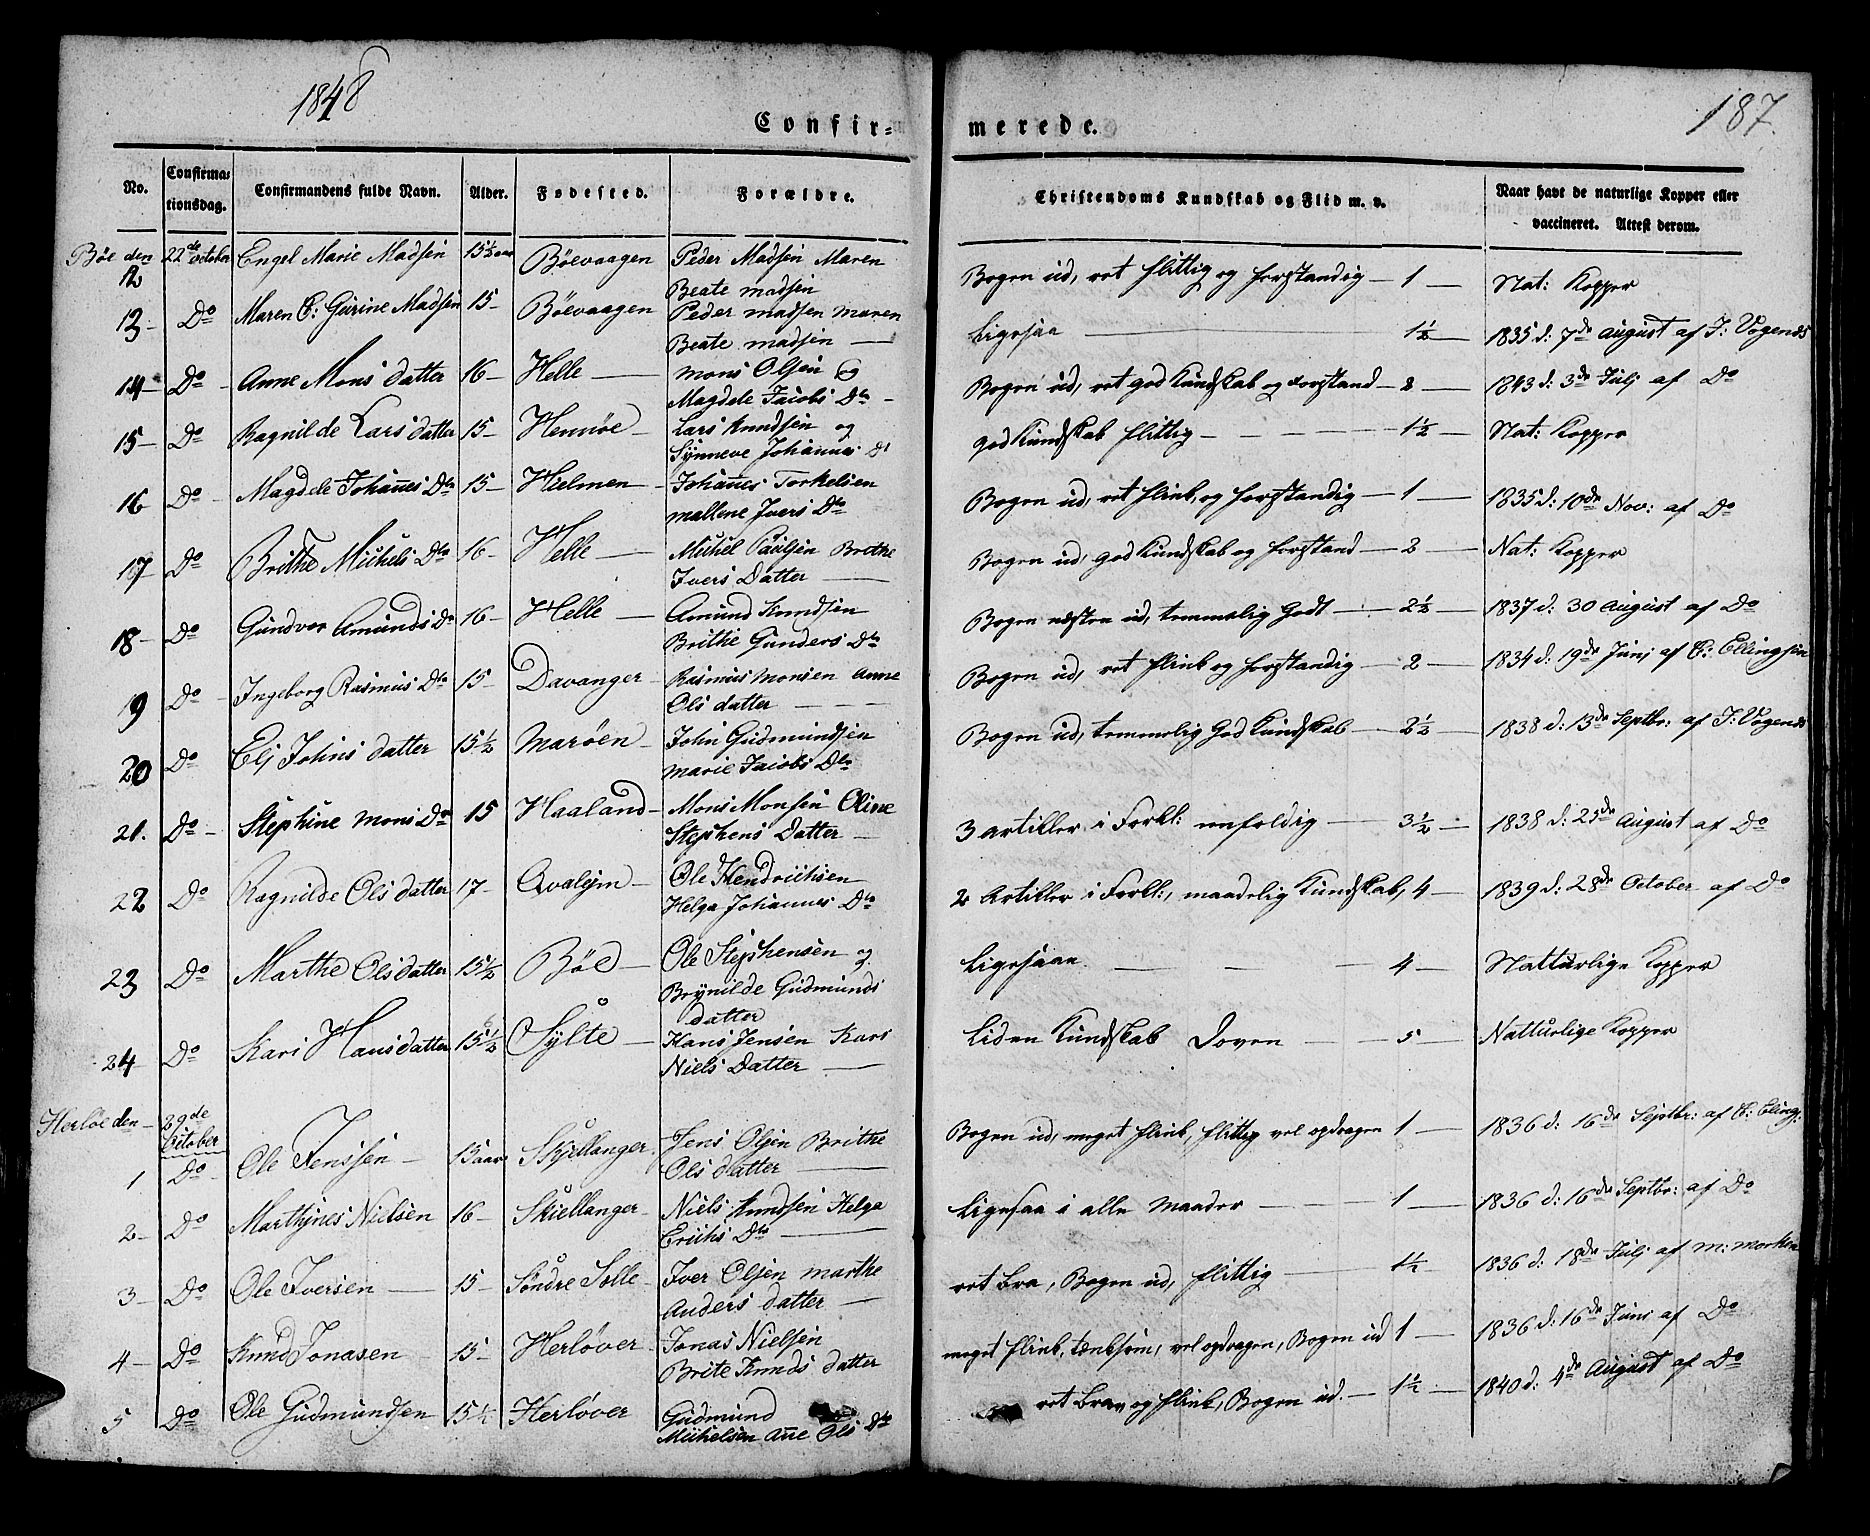 1848
187.
Confir= merede.
No. Confirma=tionsdag. Confirmandens fulde Navn. Alder. Fødested. Forældre. Christendoms Kundskab og Flid m. v. Naar havt de naturlige Kopper eller vaccineret. Attest derom.
Bøe den 22de october
12 Engel Marie Madsen 15½ aar Bøevaagen Peder Madsen Maren Bogen ud, ret flittig og forstandig — 1 — Nat: Kopper
Beate madsen
13 — Do Maren C: Gurine Madsen 15 — Bøevaagen Peder madsen maren Ligesaa — 1½ — 1835 d: 7de august af J: Vogends
Beate madsen —
14 — Do — Anne Mons datter 16 — Helle — mons Olsen og Bogen ud, ret god Kundskab og forstand — 2 — 1843 d: 3de Julj af Do
Magdele Jacobs Dtr —
15 — Do Ragnilde Lars datter 15 — Hennøe — Lars Knudsen og god Kundskab flittig — 1½ — Nat: Kopper
Synneve Johannes Dr
16 — Do — Magdele Johanes Dtr 15 — Hielmen — Johanes Torkelsen Bogen ud, ret flink, og forstandig — 1 — 1835 d: 10de Nov: af Do
mallene Ivers Do
17 — Do Brithe Michels Dtr 16 — Helle — Michel Paulsen Brithe Bogen ud, god Kundskab og forstand — 2 — Nat: Kopper
Ivers Datter —
18 — Do Gundvor Amunds Dr 16 — Helle — Amund Knudsen Bogen næsten ud, temmelig Godt — 2½ — 1837 d: 30 august af Do
Brithe Gunders Dtr
19 Do — Ingeborg Rasmus Dtr 15 — Davanger — Rasmus monsen Anne Bogen ud, ret flink og forstandig — 2 — 1834 d: 19de Junj af C: Ellingsen
Ols datter — — —
20 Do Elj Johns datter 15½ Marøen — John Gudmundsen Bogen ud, temmelig God Kundskab — 2½ — 1838 d: 13de Septbr: af J: Vogends
marie Jacobs Dtr
21. Do — Stephine Mons Dr 15 Haaland — Mons Monsen Oline 3 artikler i Forkl: eenfoldig — 3½ — 1838 d: 25de August af Do
Stephens Datter —
22 Do Ragnilde Ols datter 17 — Qvalejm — Ole Hendrichsen 2 Artikler i Forkl:, maadelig Kundskab, 4 — 1839 d: 28de October af Do
Helga Johannes Dtr
23 Do Marthe Ols datter 15½ Bøe — Ole Stephensen og Ligesaa — — — 4 — Natturlige Kopper
Brynilde Gudmunds
datter
24 Do Kari Hans datter 15½ Sylte — Hans Jensen Kari Liden Kundskab Doven — — 5 — Natturlige Kopper
Niels Datter —
Herløe den — 29de October
1 Do — Ole Jenssen — 15 aar Skjellanger Jens Olsen Brithe Bogen ud, meget flink, flittig vel opdragen 1 — 1836 d: 16de Septbr: af C: Eling:
Ols datter —
2 — Do Marthines Nielsen 16 — Skiellanger — Niels Knudsen Helga Ligesaa i alle Maader — 1 — 1836 d: 16de Septbr: af Do
Erichs Dtr —
3 — Do — Ole Iversen — 15 — Søndre Solle — Iver Olsen marthe ret bra, Bogen ud, flittig — 1½ — 1836 d: 18de Julj af m: morken
Anders datter —
4 — Do Knud Jonasen — 15 — Herløver — Jonas Nielsen meget flink, tænksom, vel opdragen, Bogen ud 1 — 1836 d: 16de Juni af Do
Brite Knuds datter
5 Do — Ole Gudmundsen 15½ Herløver Gudmund ret brav og flink, Bogen ud. — 1½ — 1840 d: 4de August af Do
Michelsen Ane Ols Dtr